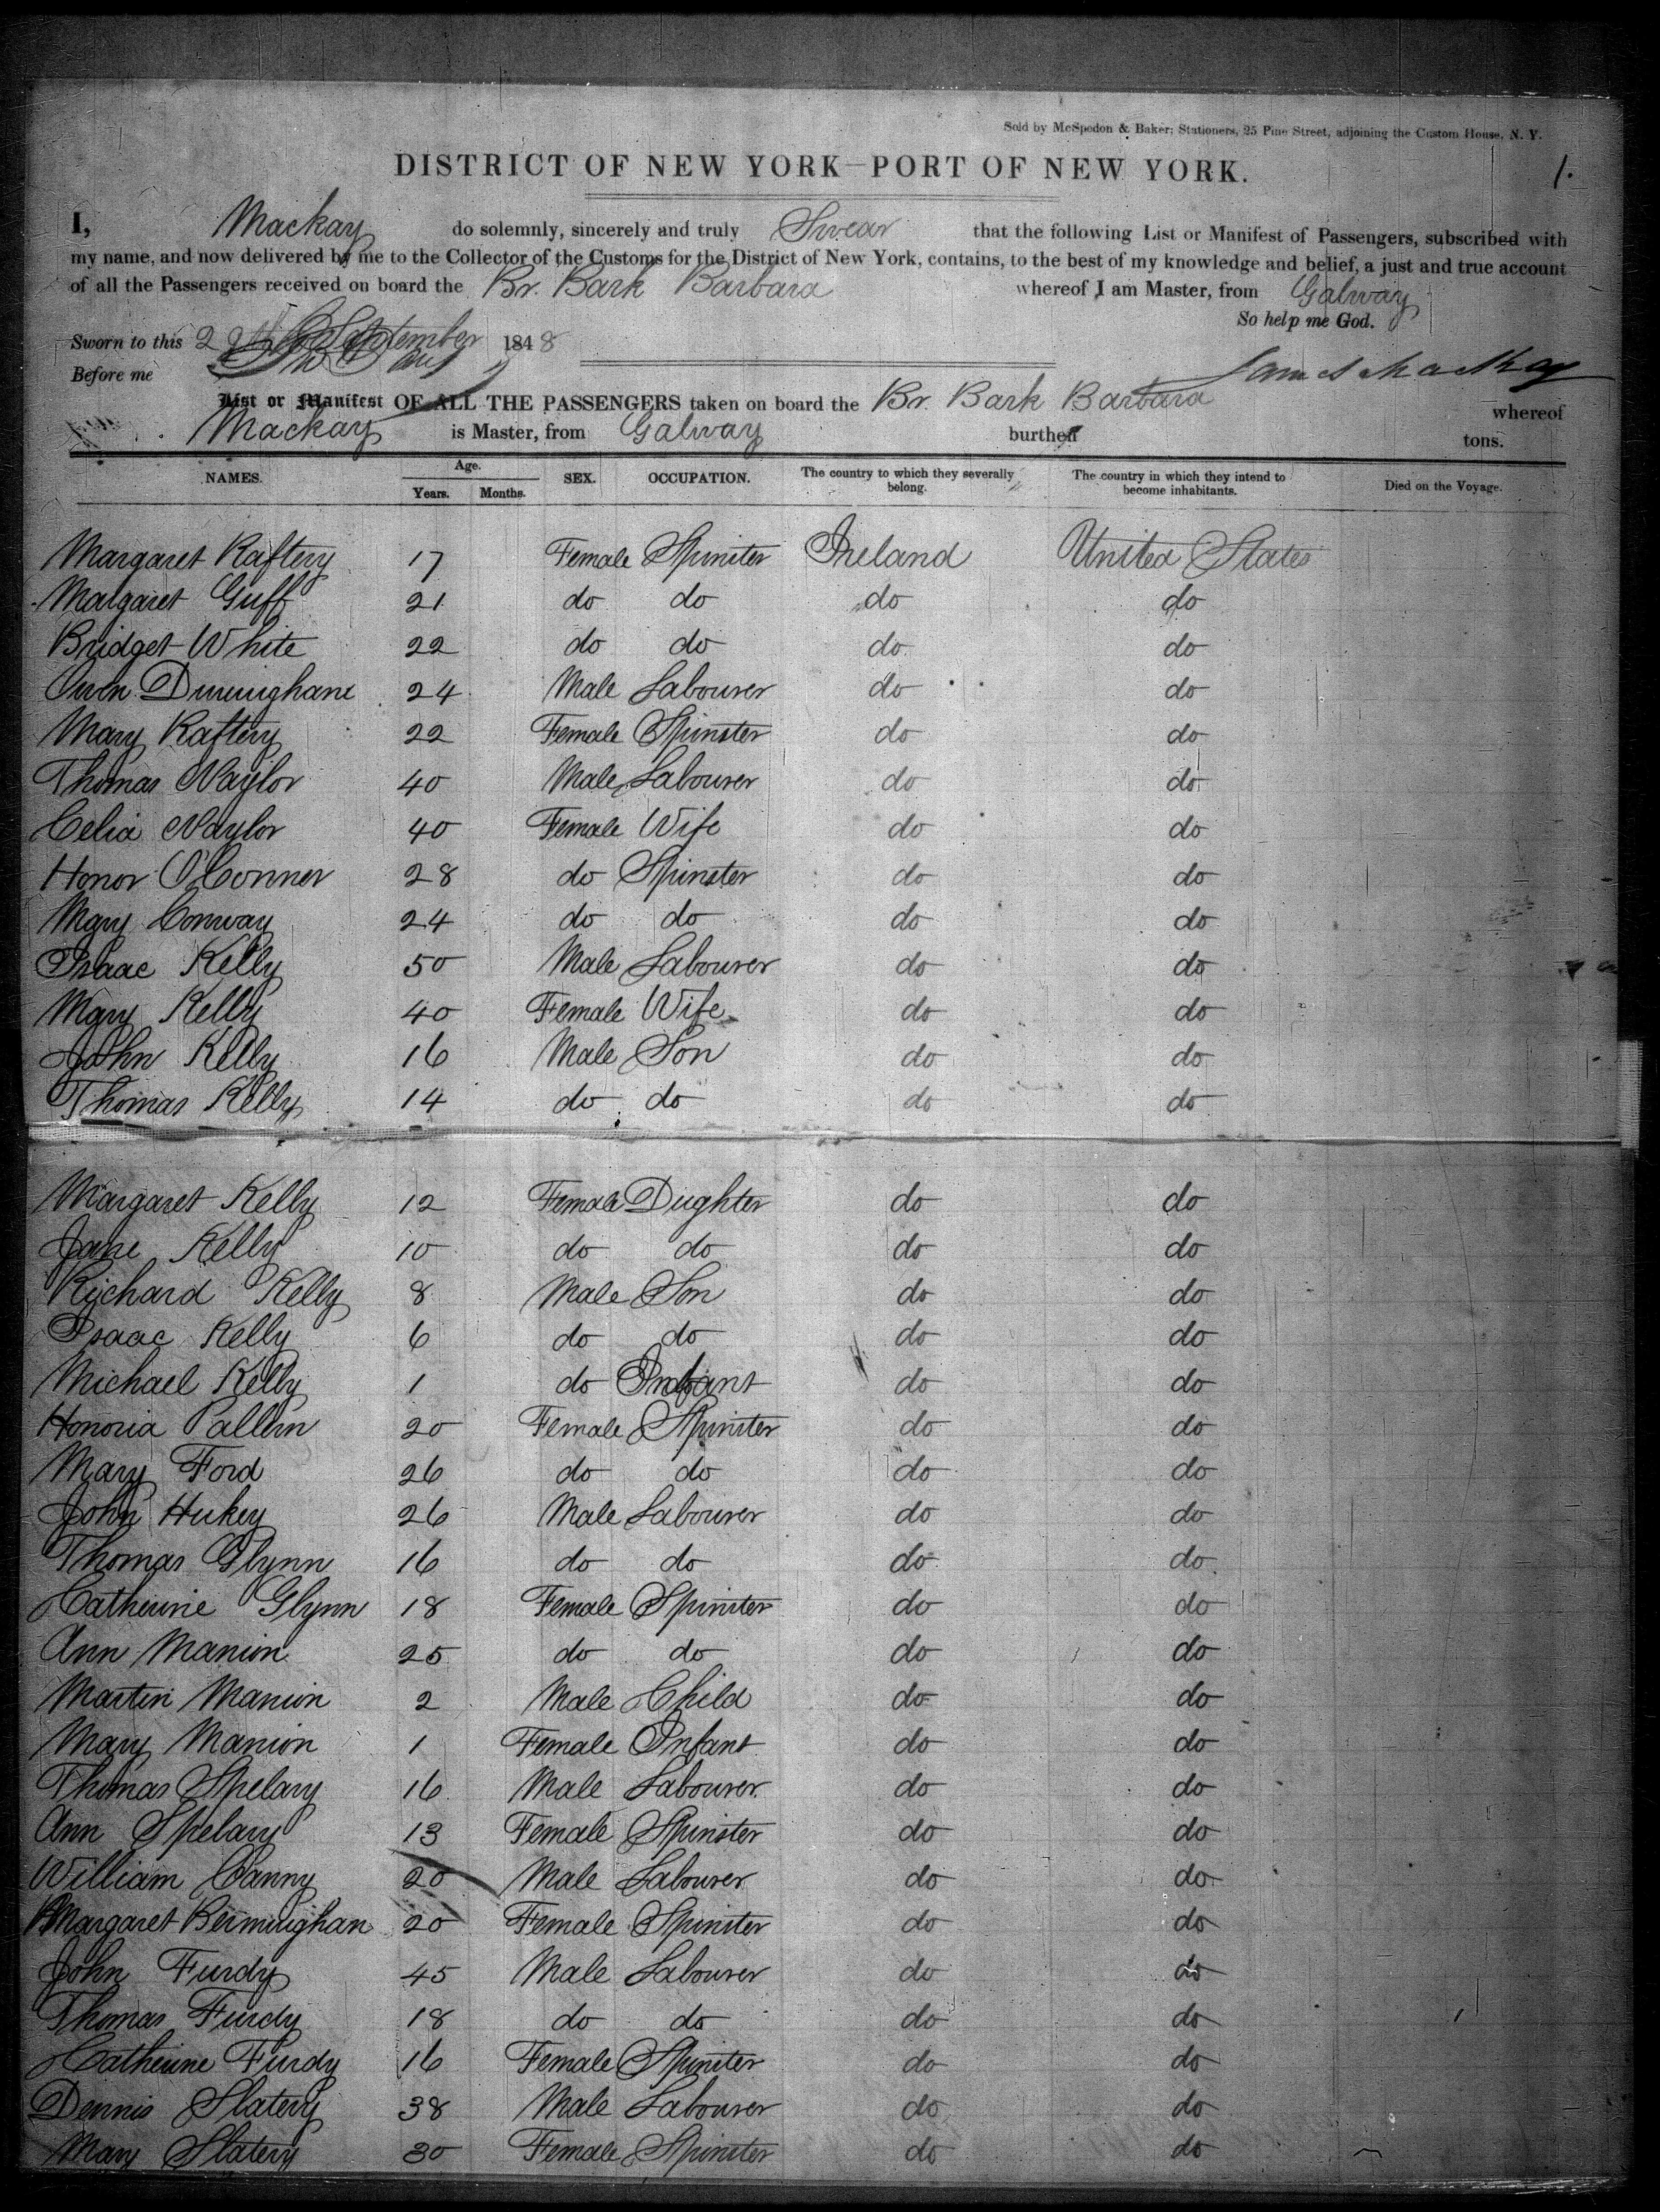 Sold by McSpedon & Baker; Stationers, 25 Pine Street, adjoining the Custom House, N. Y.
DISTRICT OF NEW YORK—PORT OF NEW YORK.
1.
I, Mackay do solemnly, sincerely and truly Swear that the following List or Manifest of Passengers, subscribed with
my name, and now delivered by me to the Collector of the Customs for the District of New York, contains, to the best of my knowledge and belief, a just and true account
of all the Passengers received on board the Br. Bark Barbara whereof I am Master, from Galway
So help me God.
Sworn to this September 1848
Before me
James Mackay
List or Manifest OF ALL THE PASSENGERS taken on board the Br. Bark Barbara whereof
Mackay is Master, from Galway burthen tons.
NAMES. Age. Years. Months. SEX. OCCUPATION. The country to which they severally belong. The country in which they intend to become inhabitants. Died on the Voyage.
Margaret Raftery 17 Female Spinster Ireland United States
Margaret Guff 21 do do do do
Bridget White 22 do do do do
Owen 24 Male Labourer do do
Mary Raftery 22 Female Spinster do do
Thomas Naylor 40 Male Labourer do do
Celia Naylor 40 Female Wife do do
Honor O'Conner 28 do Spinster do do
Mary Conway 24 do do do do
Isaac Kelly 50 Male Labourer do do
Mary Kelly 40 Female Wife do do
John Kelly 16 Male Son do do
Thomas Kelly 14 do do do do
Margaret Kelly 12 Female Dughter do do
Jane Kelly 10 do do do do
Richard Kelly 8 Male Son do do
Isaac Kelly 6 do do do do
Michael Kelly 1 do Infant do do
Honoria Pallen 20 Female Spinster do do
Mary Ford 26 do do do do
John Hickey 26 Male Labourer do do
Thomas Glynn 16 do do do do
Catherine Glynn 18 Female Spinster do do
Ann Manion 25 do do do do
Martin Manion 2 Male Child do do
Mary Manion 1 Female Infant do do
Thomas Spelary 16 Male Labourer do do
Ann Spelary 13 Female Spinster do do
William Canny 20 Male Labourer do do
Margaret Bermingham 20 Female Spinster do do
John Furdy 45 Male Labourer do do
Thomas Furdy 18 do do do do
Catherine Furdy 16 Female Spinster do do
Dennis Slatery 38 Male Labourer do do
Mary Slatery 30 Female Spinster do do